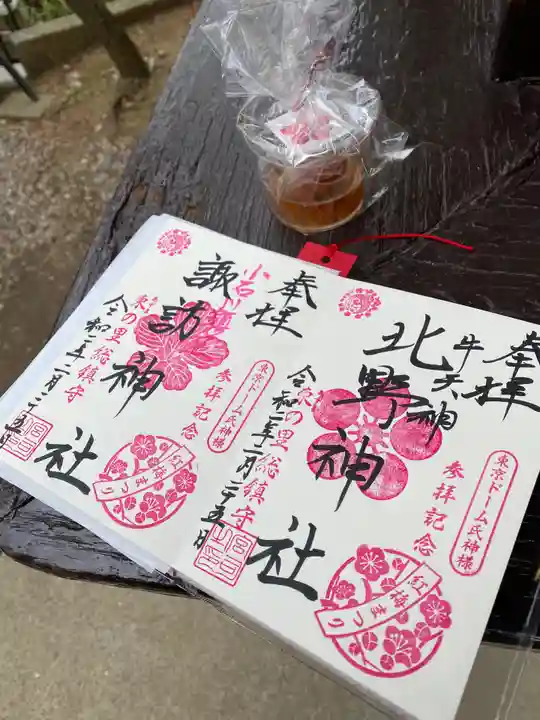 奉拝
牛天神
北野神社
東京ドーム氏神様
参拝記念
東の里総鎮守
令和二年二月二十五日
紅梅まつり
奉拝
諏訪神社
東京ドーム氏神様
参拝記念
東の里総鎮守
令和二年二月二十五日
紅梅まつり